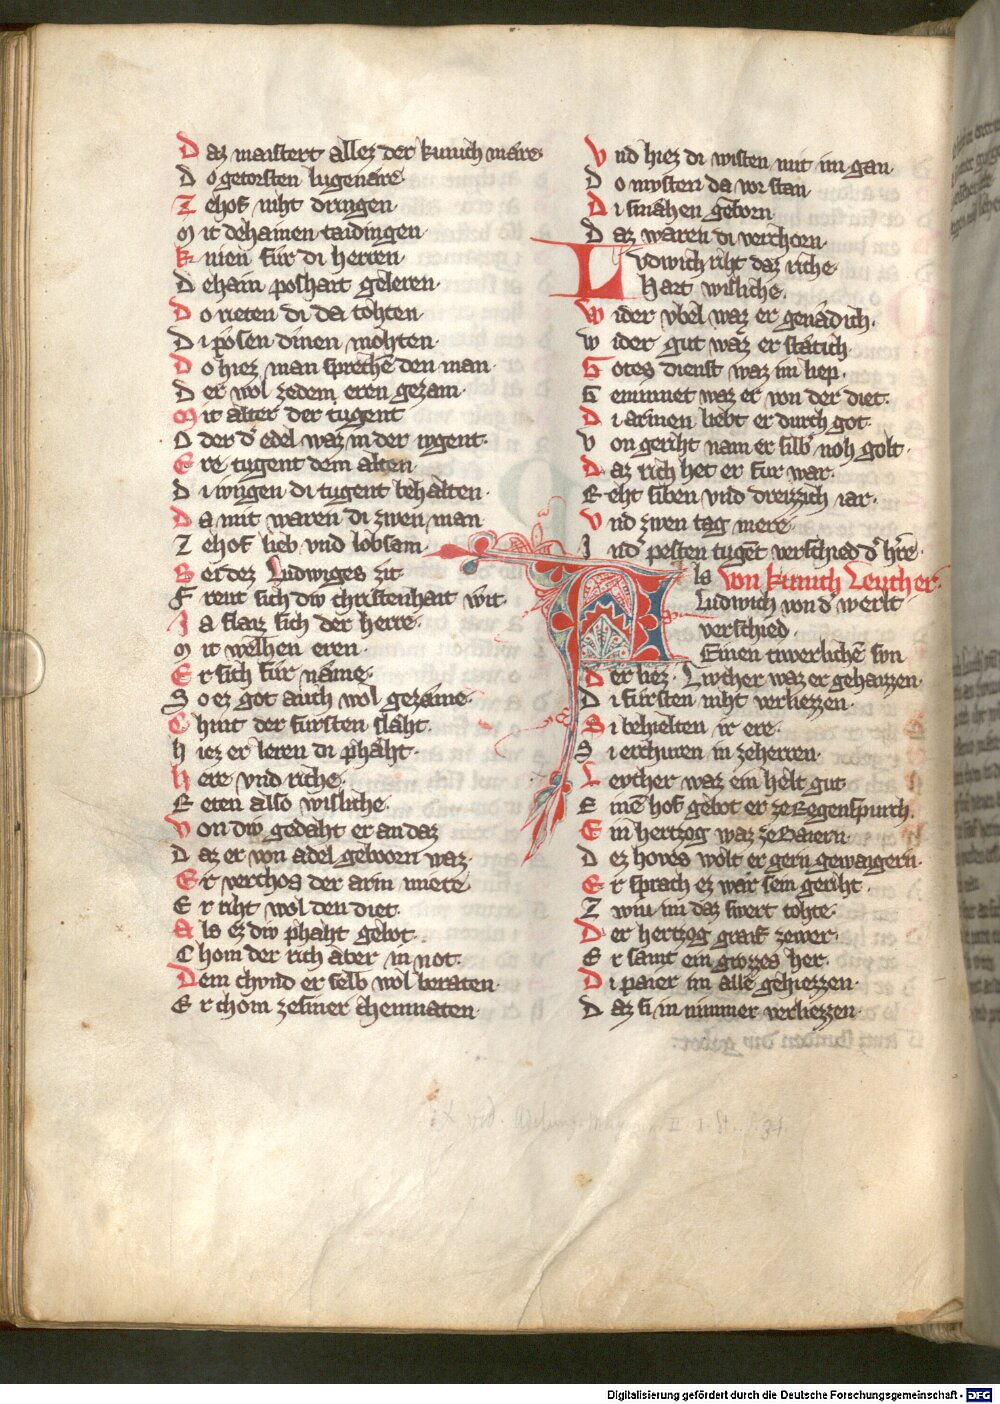 Daz maistert allez der kunich mære
Do getorsten lugenare
Ze hof niht dringen
Mit dehainen taidingen
Knien fur di herren
Dehain poshait geleren
Do rieten di da tohten
Di posen dinen mohten
Do hiez man sprechē den man
Der wol zedem eren gezam
Mit alter der tugent
Oder d' edel waz in der iugent
Ere tugent dem alten
Di iungen di tugent behalten
Da mit waren di zwen man
Ze hof lieb vnd lobsam
Bei dez Ludwiges zit
Freut sich div christenhait wit
Ja flaiz sich der herre
Mit welhen eren
Er sich fur näme
So ez got auch wol gezame
Chunt der fursten slaht
hiez er leren di phaht
Herre vnd riche
Reten also wisliche
Von div gedaht er an daz
Daz er von adel geboorn waz
Er verchos der arm miete
Er riht wol den diet
Als ez div phaht gebot
Chom der rich aber in not
Dem chund er selb wol beraten
Er chom zesiner chemnaten
Vnd hiez di wisten mit im gan
Do mvsten da vor stan
Di smahen geborn
Daz waren di verchorn
Ludwich riht daz riche
Hart wisliche
Wider vbel waz er genädich
Wider gut waz er stätich
Gotes dienst waz im liep
Geminnet waz er von der diet
Di armen liebt er durch got
Von geriht nam er silb' noh golt
Daz rich het er fur war
Reht siben vnd dreizzich iar
Vnd zwen tag mere
In d' pesten tugēt verschied d' h're
Von kunich Leuther
Als
Ludwich von d' werlt
verschied
Einen tiwerlichē svn
Der liez Liwther waz er gehaizzen
Di fursten niht verliezzen
Si behielten ir ere
Si erchuren in zeherren
Levther waz ein helt gut
Einē hof gebot er ze Regenspurch
Ein hertzog waz ze Baiern
Dez hoves wolt er gern gewaigern
Er sprach ez wär sein geriht
Zwiu im daz swert tohte
Der hertzog graif zewer
Er samt ein grozzes her
Di paier im alle gehiezzen
Daz si in nimmer verliezzen
Digitalisierung gefördert durch die Deutsche Forschungsgemeinschaft - DFG